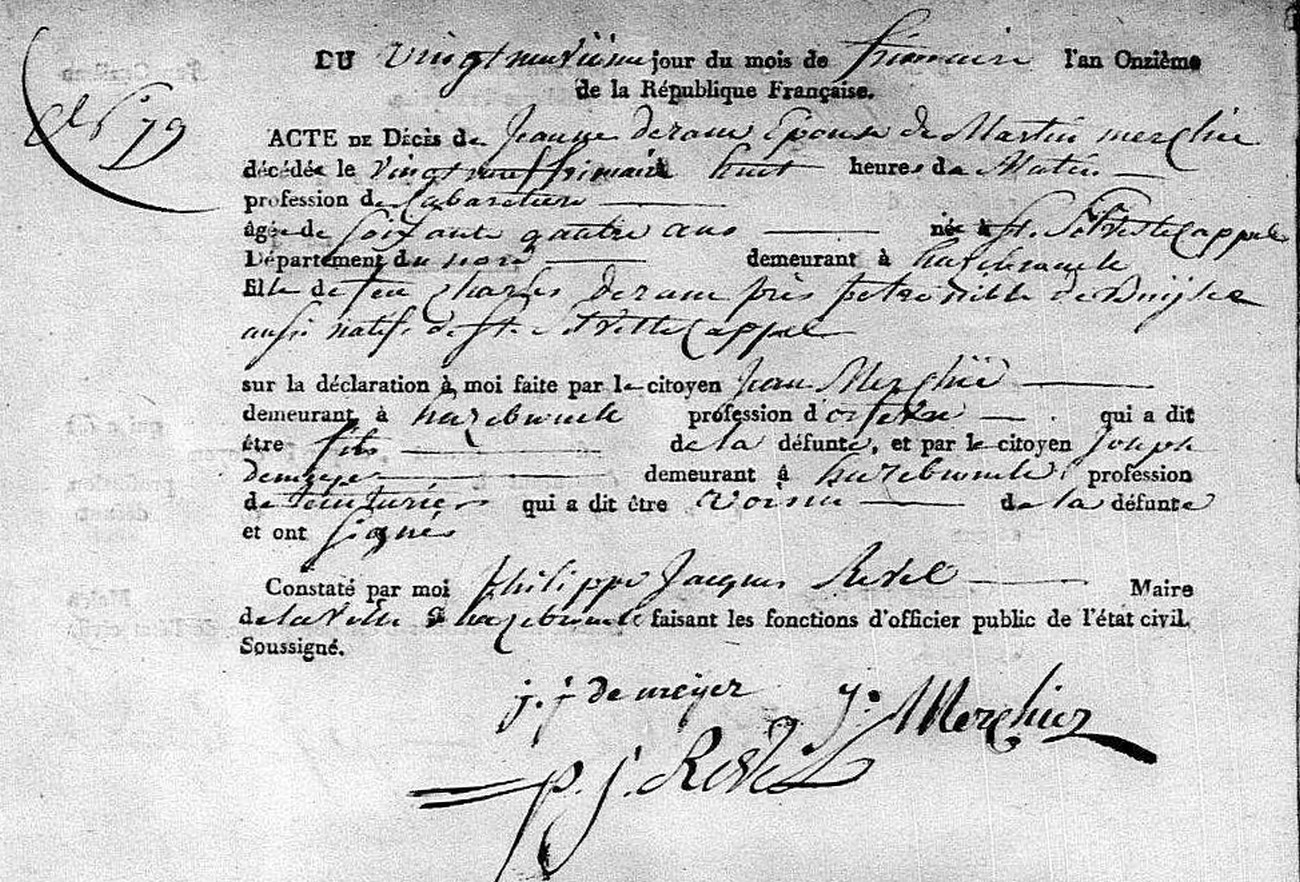 DU vingt neuvieme jour du mois de frimaire l'an Onzième
de la République Française.
N° 79
ACTE DE Décès de Jeanne deram Epouse de Martin merchie
décédée le vingt neuf frimaire huit heures du Matin
profession de Cabaretiere
âgée de soixante quatre ans née à St. Silvestre Cappel
Département du nord demeurant à hazebrouck
fille de feu Charles Deram
aussi natifs de St. Silvestre Cappel
sur la déclaration à moi faite par le citoyen Jean Merchie
demeurant à hazebrouck profession d'orfevre qui a dit
être fils de la défunte, et par le citoyen Joseph
demeyer demeurant à hazebrouck profession
de teinturier qui a dit être voisin de la défunte
et ont signés
Constaté par moi Philippe Jacques Revel Maire
de la Ville d'hazebrouck faisant les fonctions d'officier public de l'état civil.
Soussigné.
j. j de meyer J: Merchier
p. j. Revel